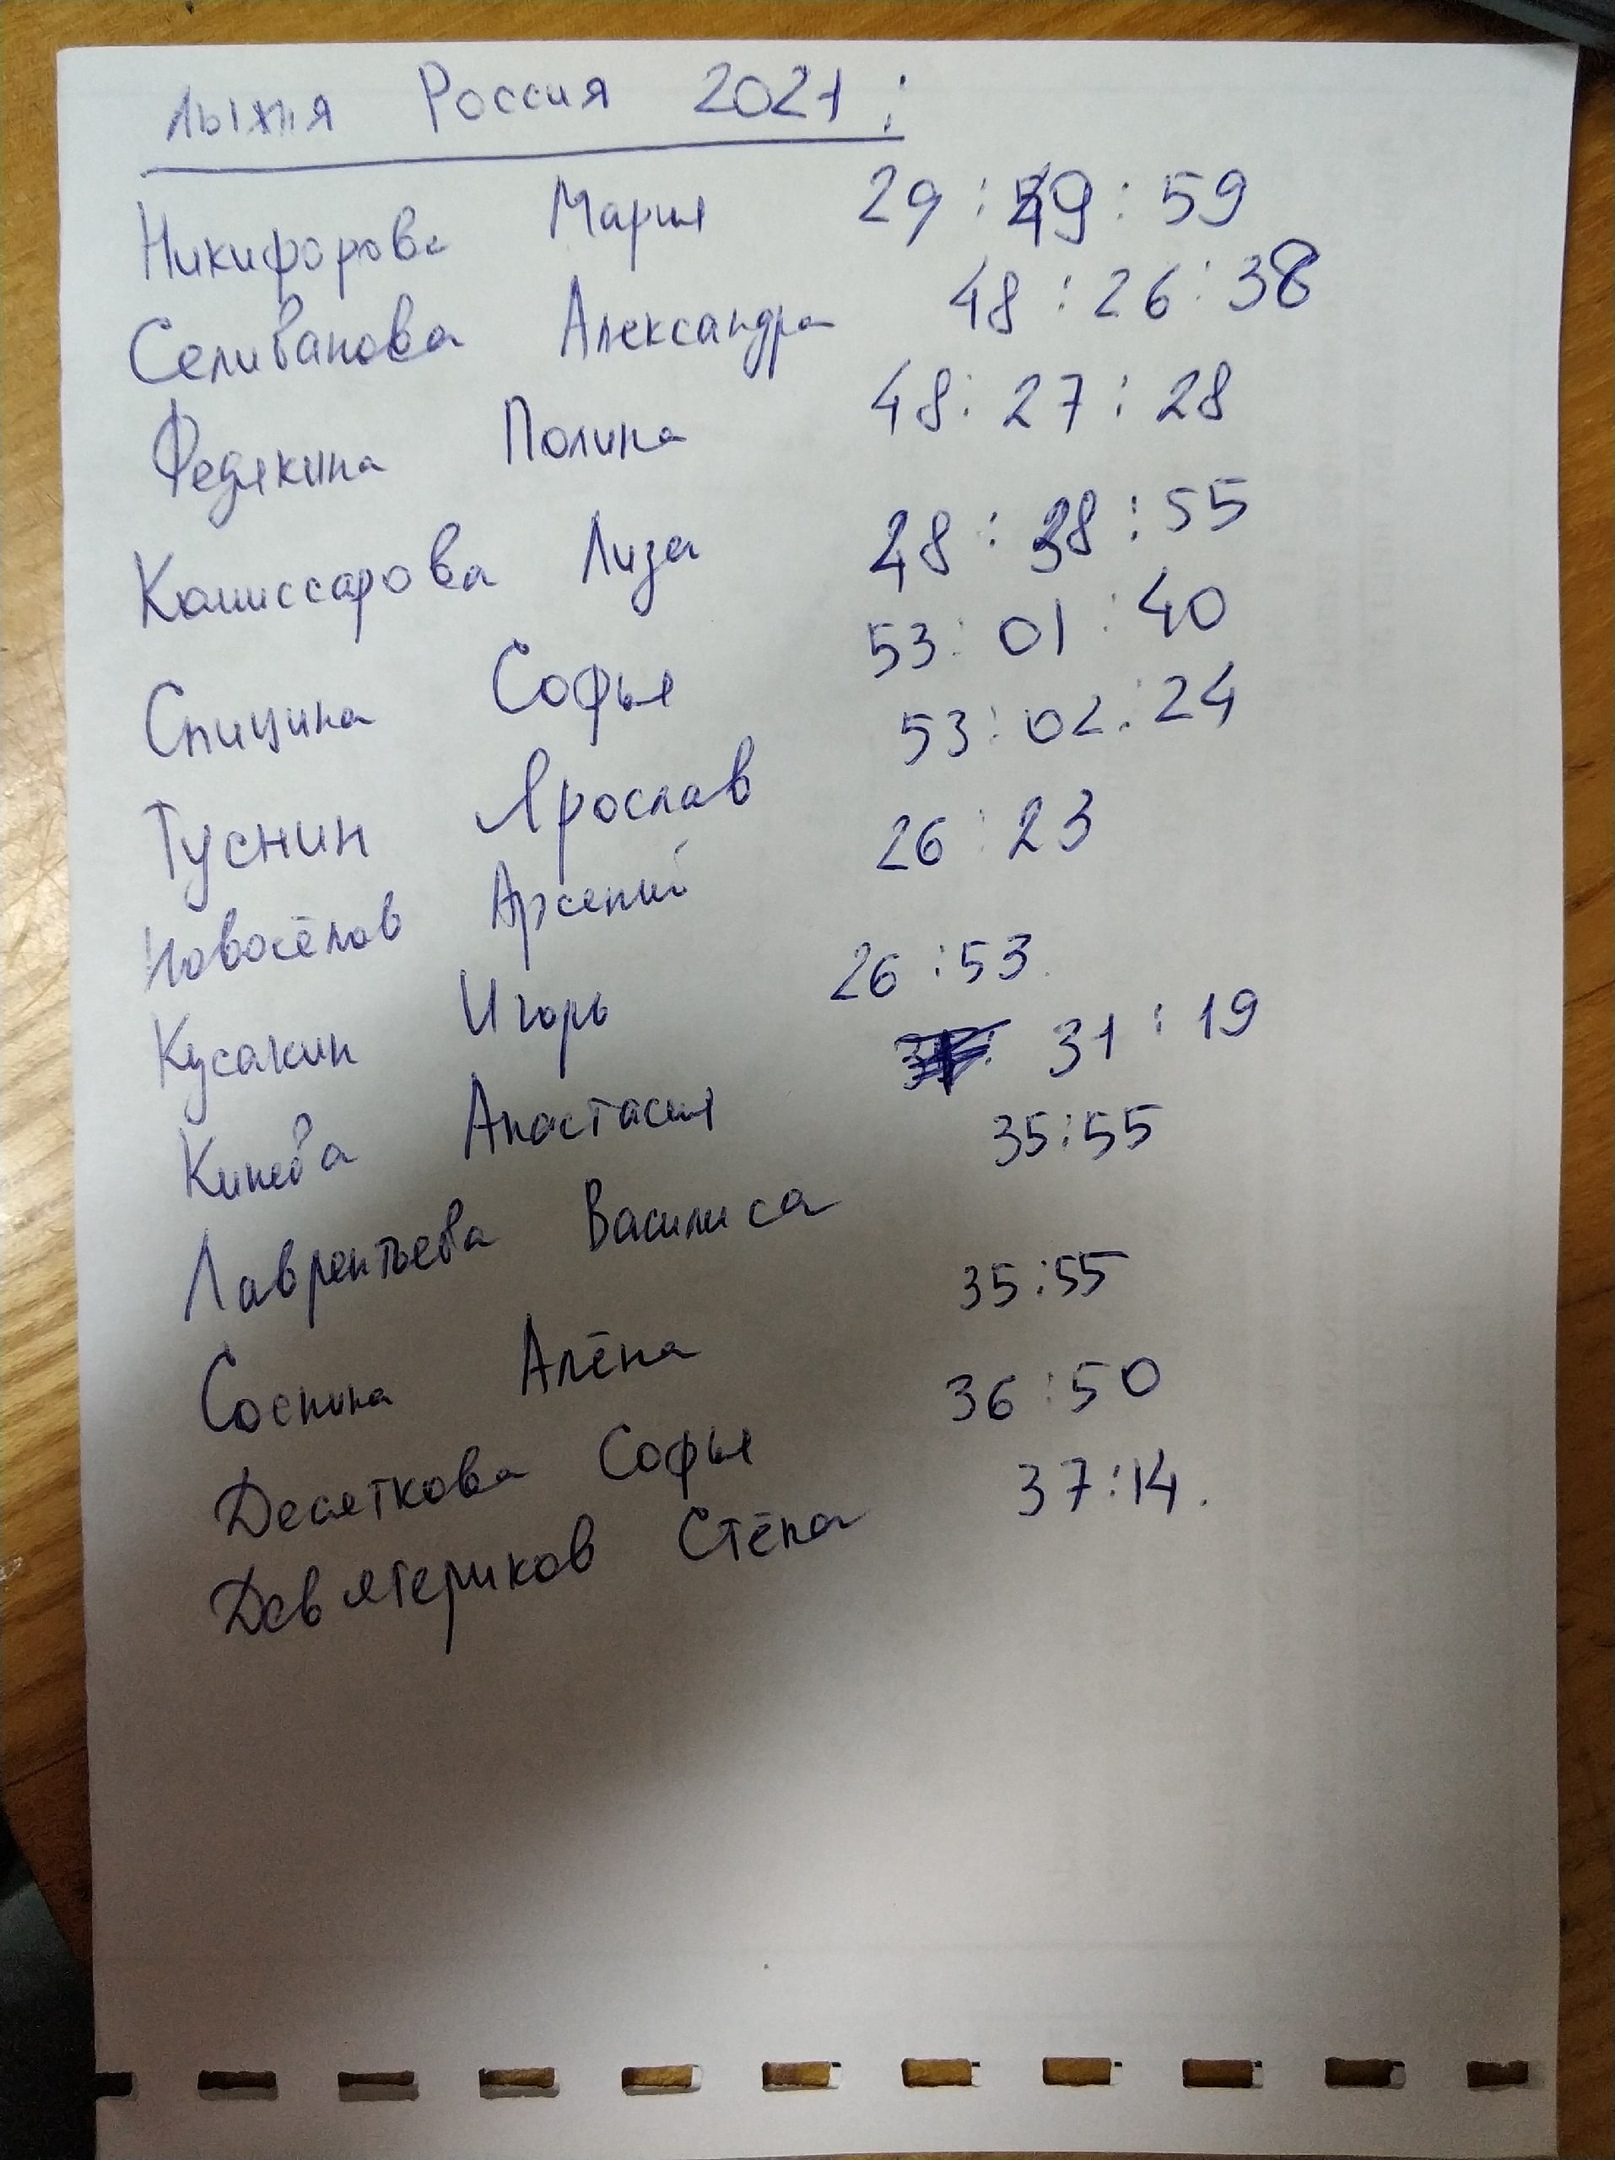 лыжня Россия 2021:
Никифорова Мария 29:59
Селиванова Александра 48:26:38
Федякина Полина 48:27:28
Комиссарова Лиза 48:55
Спицина Софья 53:01:40
Туснин Ярослав 53:02:24
Новосёлов Арсений 26:23
Кусакин Игорь 26:53
Кинева Анастасия 31:19
Лаврентьева Василиса 35:55
Соснина Алёна 35:55
Десяткова Софья 36:50
Девятериков Стёпа 37:14.